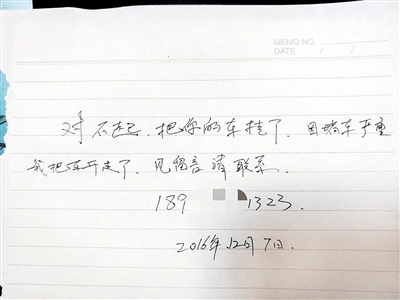 MEMO NO.
DATE / /
对不起,把你的车挂了,因堵车严重
我把车开走了,见留言请联系.
189 1323.
2016年.12月7日.